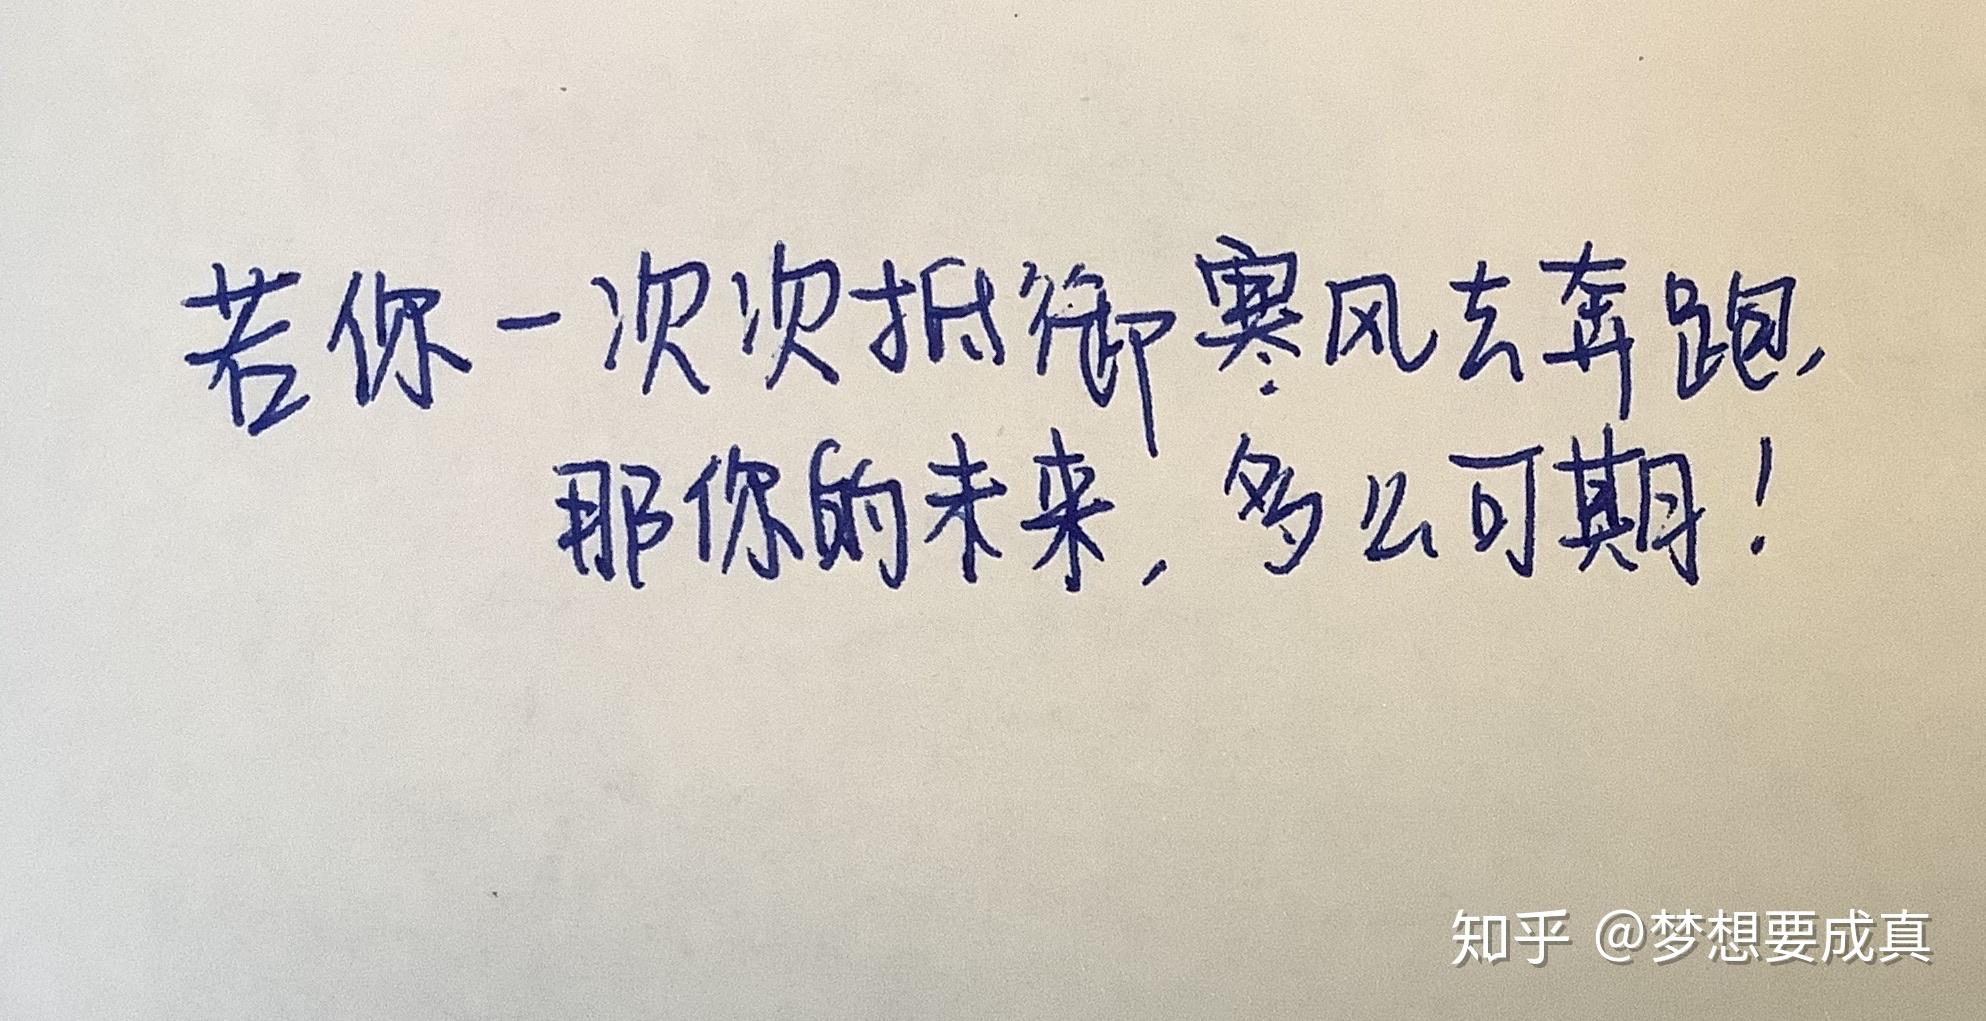 若你一次次抵御寒风去奔跑,
那你的未来,多么可期!
知乎 @梦想要成真